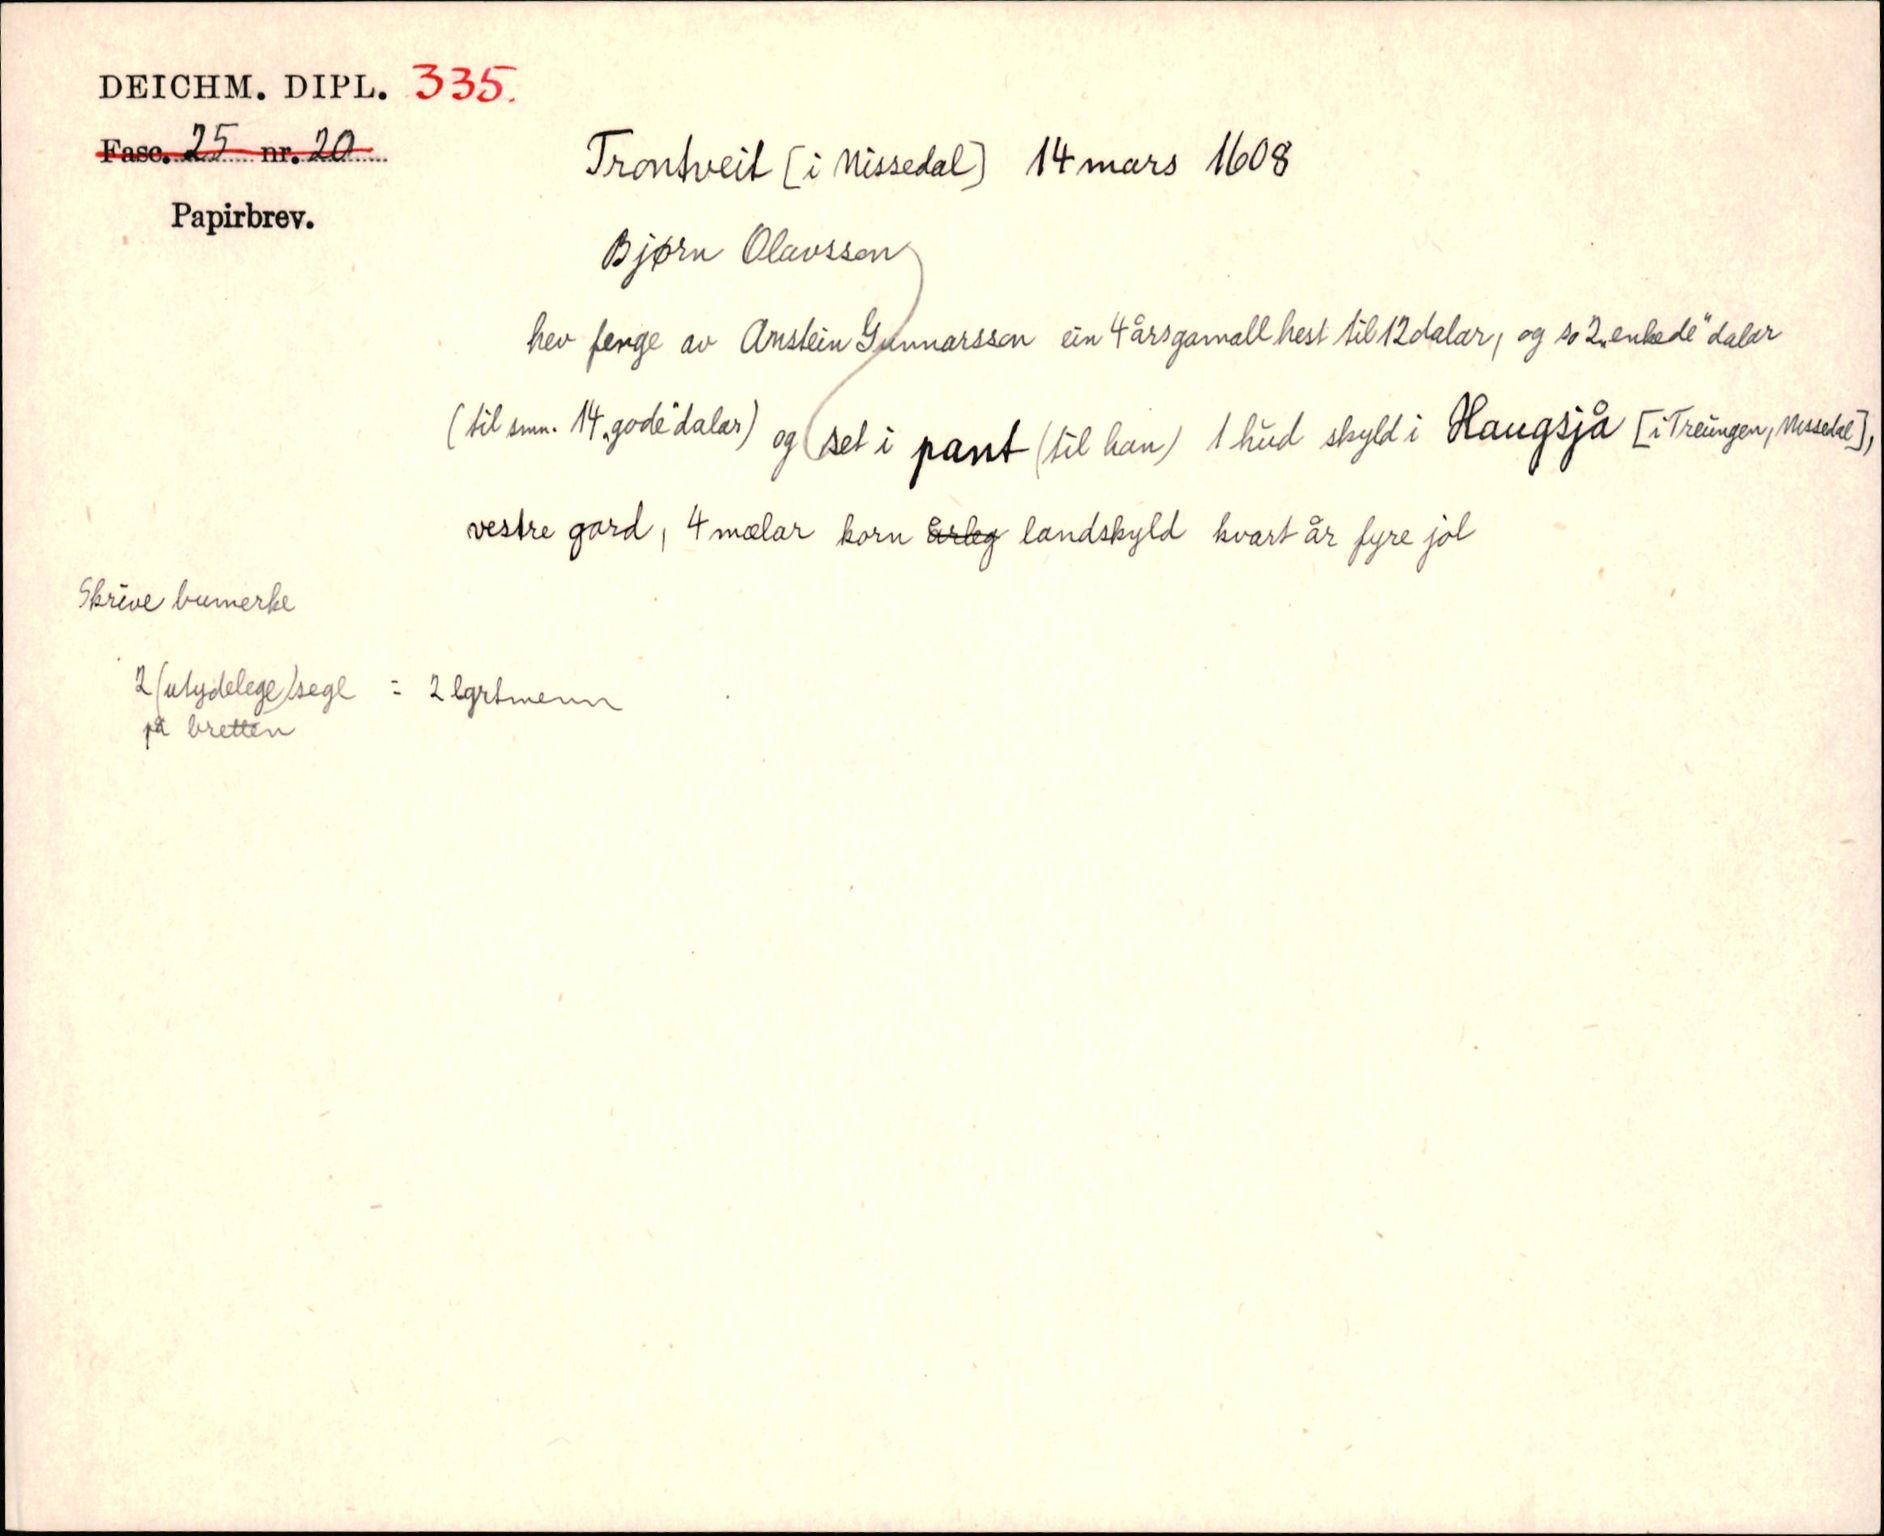 DEICHM. DIPL. 335.
Fasc. 25 nr. 20
Papirbrev.
Trontveit [i Nissedal] 14 mars 1608
Bjørn Olavsson
hev fenge av Arnstein Gunnarsson ein 4 årsgamall hest til 12 dalar, og so 2 „enkede" dalar
(til smn. 14 „gode" dalar) og set i pant (til han) 1 hud skyld i Haugsjå [i Treungen, Nissedal],
vestre gard, 4 mælar korn årleg landskyld kvart år fyre jol
Skrive bumerke
2 (utydelege) segl = 2 lgrtmenn
på bretten